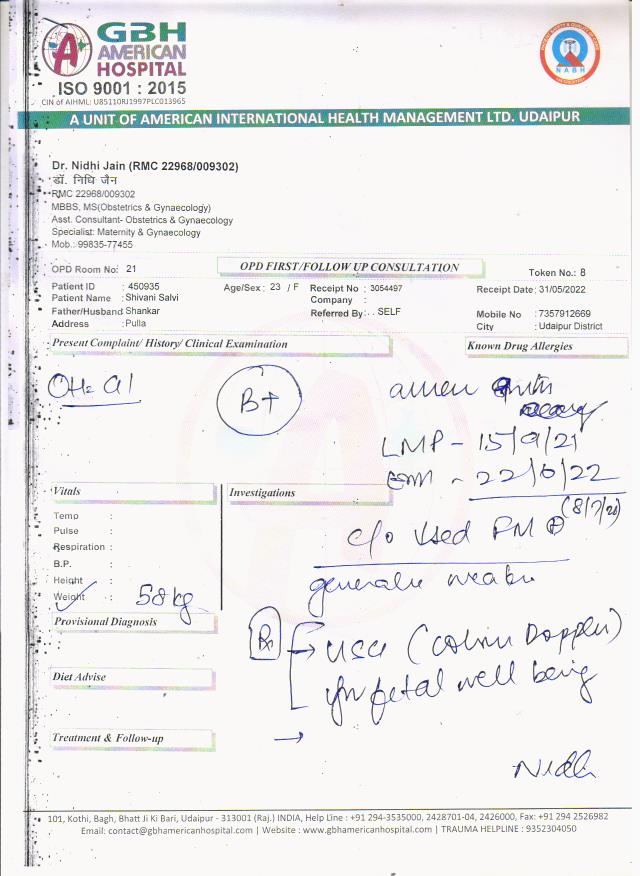 GBH
AMERICAN
HOSPITAL
ISO 9001 : 2015
CIN of AIHML: U85110RJ1997PLC013965
NABH
A UNIT OF AMERICAN INTERNATIONAL HEALTH MANAGEMENT LTD. UDAIPUR
Dr. Nidhi Jain (RMC 22968/009302)
डॉ. निधि जैन
RMC 22968/009302
MBBS, MS(Obstetrics & Gynaecology)
Asst. Consultant- Obstetrics & Gynaecology
Specialist: Maternity & Gynaecology
Mob.: 99835-77455
OPD Room No: 21 OPD FIRST/FOLLOW UP CONSULTATION Token No.: 8
Patient ID : 450935 Age/Sex : 23 / F Receipt No : 3054497 Receipt Date: 31/05/2022
Patient Name : Shivani Salvi Company :
Father/Husband Shankar Referred By : . . SELF Mobile No : 7357912669
Address : Pulla City : Udaipur District
Present Complaint/ History/ Clinical Examination Known Drug Allergies
B+
LMP - 15/9/21
- 22/6/22
(8/7/2
c/o Used FM +
Vitals Investigations
Temp :
Pulse :
Respiration :
B.P. :
Height :
Weight : 58 kg
Provisional Diagnosis
Rx → USG (Colour Doppler)
for fetal well being
Diet Advise
Treatment & Follow-up →
Nidhi
101, Kothi, Bagh, Bhatt Ji Ki Bari, Udaipur - 313001 (Raj.) INDIA, Help Line : +91 294-3535000, 2428701-04, 2426000, Fax: +91 294 2526982
Email: contact@gbhamericanhospital.com | Website : www.gbhamericanhospital.com | TRAUMA HELPLINE : 9352304050